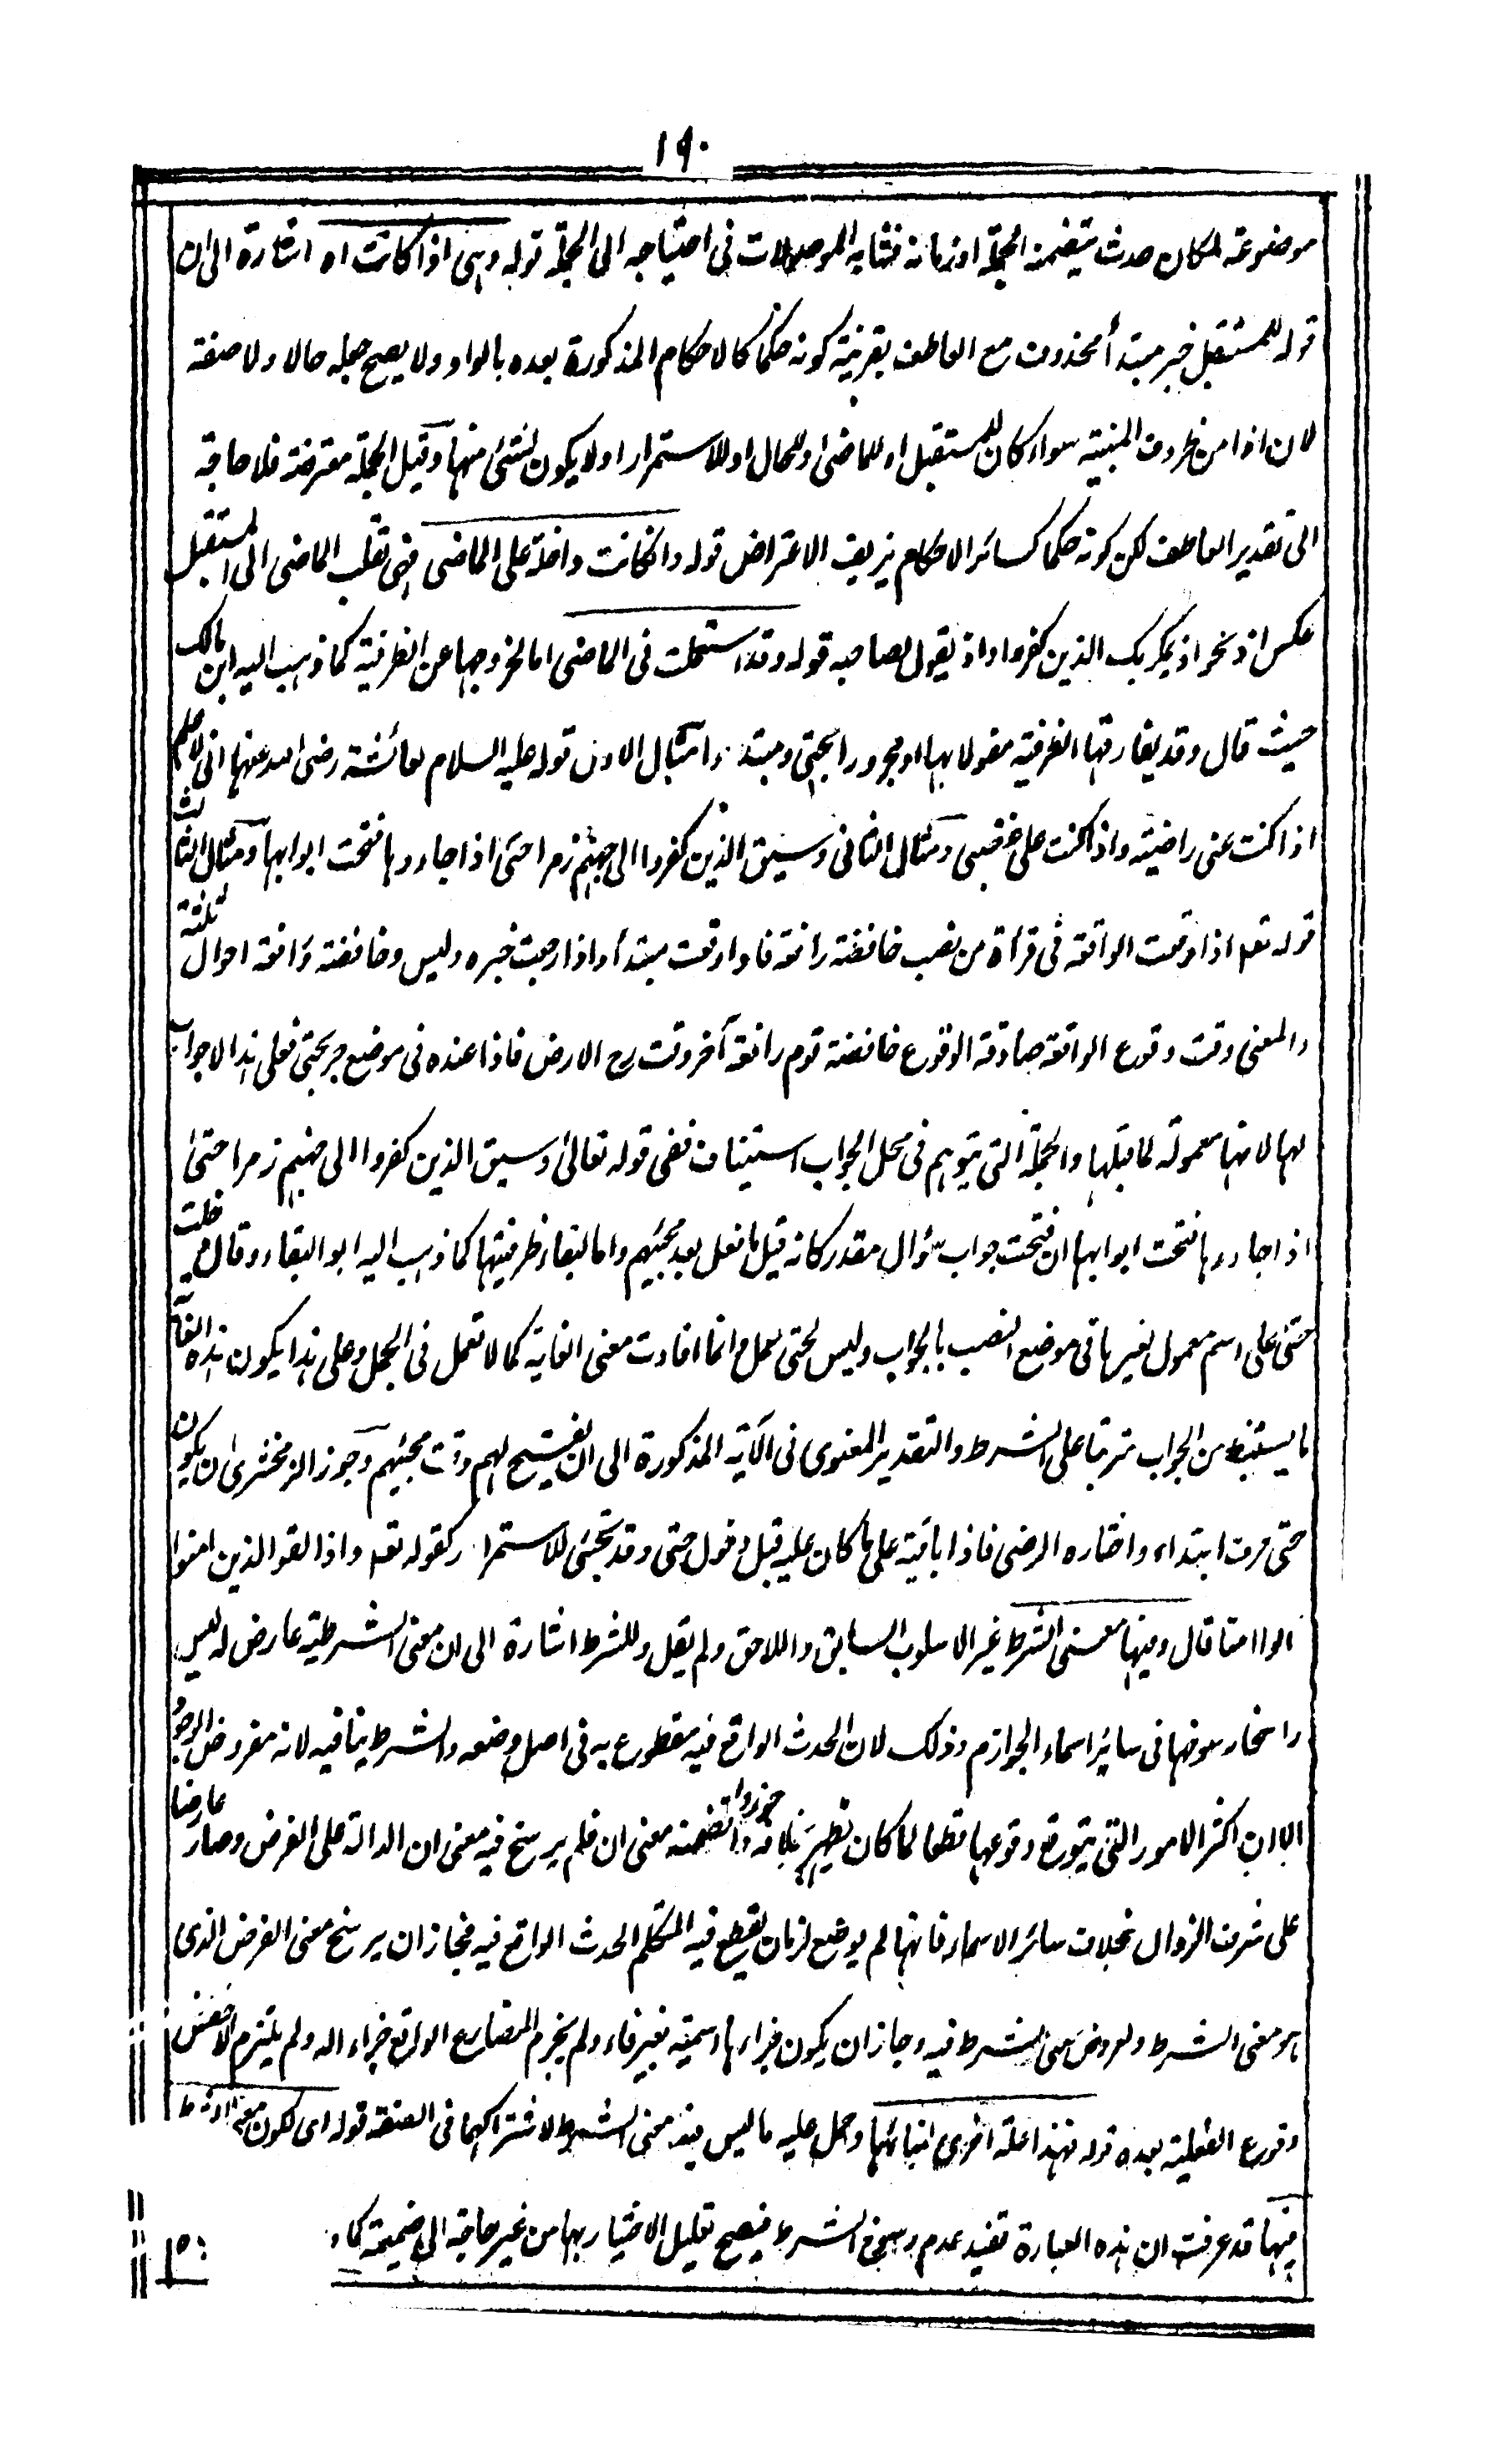 ١٩٠
موضوعة لمكان حدث يتضمنه الجملة او زمانه فتشابه الموصولات فى احتياجه الى الجملة قوله وهى اذا كانت اه اشارة الى ان
قوله للمستقبل خبر مبتدأ محذوف مع العاطف بقرينة كونه حكما كالاحكام المذكورة بعده بالواو ولا يصح جعله حالا ولا صفة
لان اذا من الظروف المبنية سواء كان للمستقبل او للماضى او للحال او للاستمرار او لا يكون لشئ منها وقيل الجملة معترضة فلا حاجة
الى تقدير العاطف لكن كونه حكما كسائر الاحكام يزيف الاعتراض قوله وان كانت داخلة على الماضى فهى تقلب الماضى الى المستقبل
عكس اذ نحو اذ يمكر بك الذين كفروا واذ يقول لصاحبه قوله وقد استعملت فى الماضى اما لخروجها عن الظرفية كما ذهب اليه ابن مالك
حيث قال وقد يفارقها الظرفية مفعولا بها او مجرورا بحتى ومبتدء امثال الاول قوله عليه السلام لعائشة رضى الله عنها انى لاعلم
اذا كنت عنى راضية واذا كنت على غضبى ومثال الثانى وسيق الذين كفروا الى جهنم زمرا حتى اذا جاءوها فتحت ابوابها ومثال الثالث
قوله تعه اذا وقعت الواقعة فى قرأة من نصب خافضة رافعة فاذا وقعت مبتدأ واذا رجت خبره وليس وخافضة ورافعة احوال ثلثة
والمعنى وقت وقوع الواقعة صادقة الوقوع خافضة قوم رافعة آخر وقت رج الارض فاذا عنده فى موضع جر بحتى فعلى هذا لا جواب
لها لانها معمولة لما قبلها والجملة التى يتوهم فى محل الجواب استيناف ففى قوله تعالى وسيق الذين كفروا الى جهنم زمرا حتى
اذا جاءوها فتحت ابوابها ان فتحت جواب سؤال مقدر كانه قيل ما فعل بعد مجيئهم واما لبقاء ظرفيتها كما ذهب اليه ابو البقاء وقال دخلت
حتى على اسم معمول لغيرها فى موضع النصب بالجواب وليس لحتى عمل وانما افادت معنى الغاية كما لا تعمل فى الجمل وعلى هذا يكون هذه الغاية
ما يستنبط من الجواب مترتبا على الشرط والتقدير المعنوى فى الآية المذكورة الى ان يفتح لهم وقت مجيئهم وجوز الزمخشرى ان يكون
حتى حرف ابتداء واختاره الرضى فاذا باقية على ما كان عليه قبل دخول حتى وقد تجئ للاستمرار كقوله تعه واذا لقوا الذين امنوا
قالوا امنا قال وفيها معنى الشرط غير الاسلوب السابق واللاحق ولم يقل وللشرط اشارة الى ان معنى الشرطية عارض له ليس
راسخا رسوخها فى سائر اسماء الجوازم وذلك لان الحدث الواقع فيه مقطوع به فى اصل وضعه والشرط ينافيه لانه مفروض الوجود
الا ان اكثر الامور التى يتوقع وقوعها قطعا لما كان يظهر بخلافه جوزوا تضمنه معنى ان فلم يرسخ فيه معنى ان الدالة على الفرض وصار عارضا
على شرف الزوال بخلاف سائر الاسماء فانها لم يوضع لزمان يقطع فيه المتكلم الحدث الواقع فيه فجاز ان يرسخ معنى الفرض الذى
هو معنى الشرط ولعروض معنى الشرط فيه وجاز ان يكون جزاءها اسمية بغير فاء ولم يجزم المضارع الواقع جزاء له ولم يلتزم الاخفش
وقوع الفعلية بعده قوله فهذا علة اخرى لبنائها وحمل عليه ما ليس فيه معنى الشرط لاشتراكهما فى الصنعة قوله اى لكون معنى الشرط
فيها قد عرفت ان هذه العبارة تفيد عدم رسوخ الشرط فيصح تعليل الاختيار بها من غير حاجة الى ضميمة كما